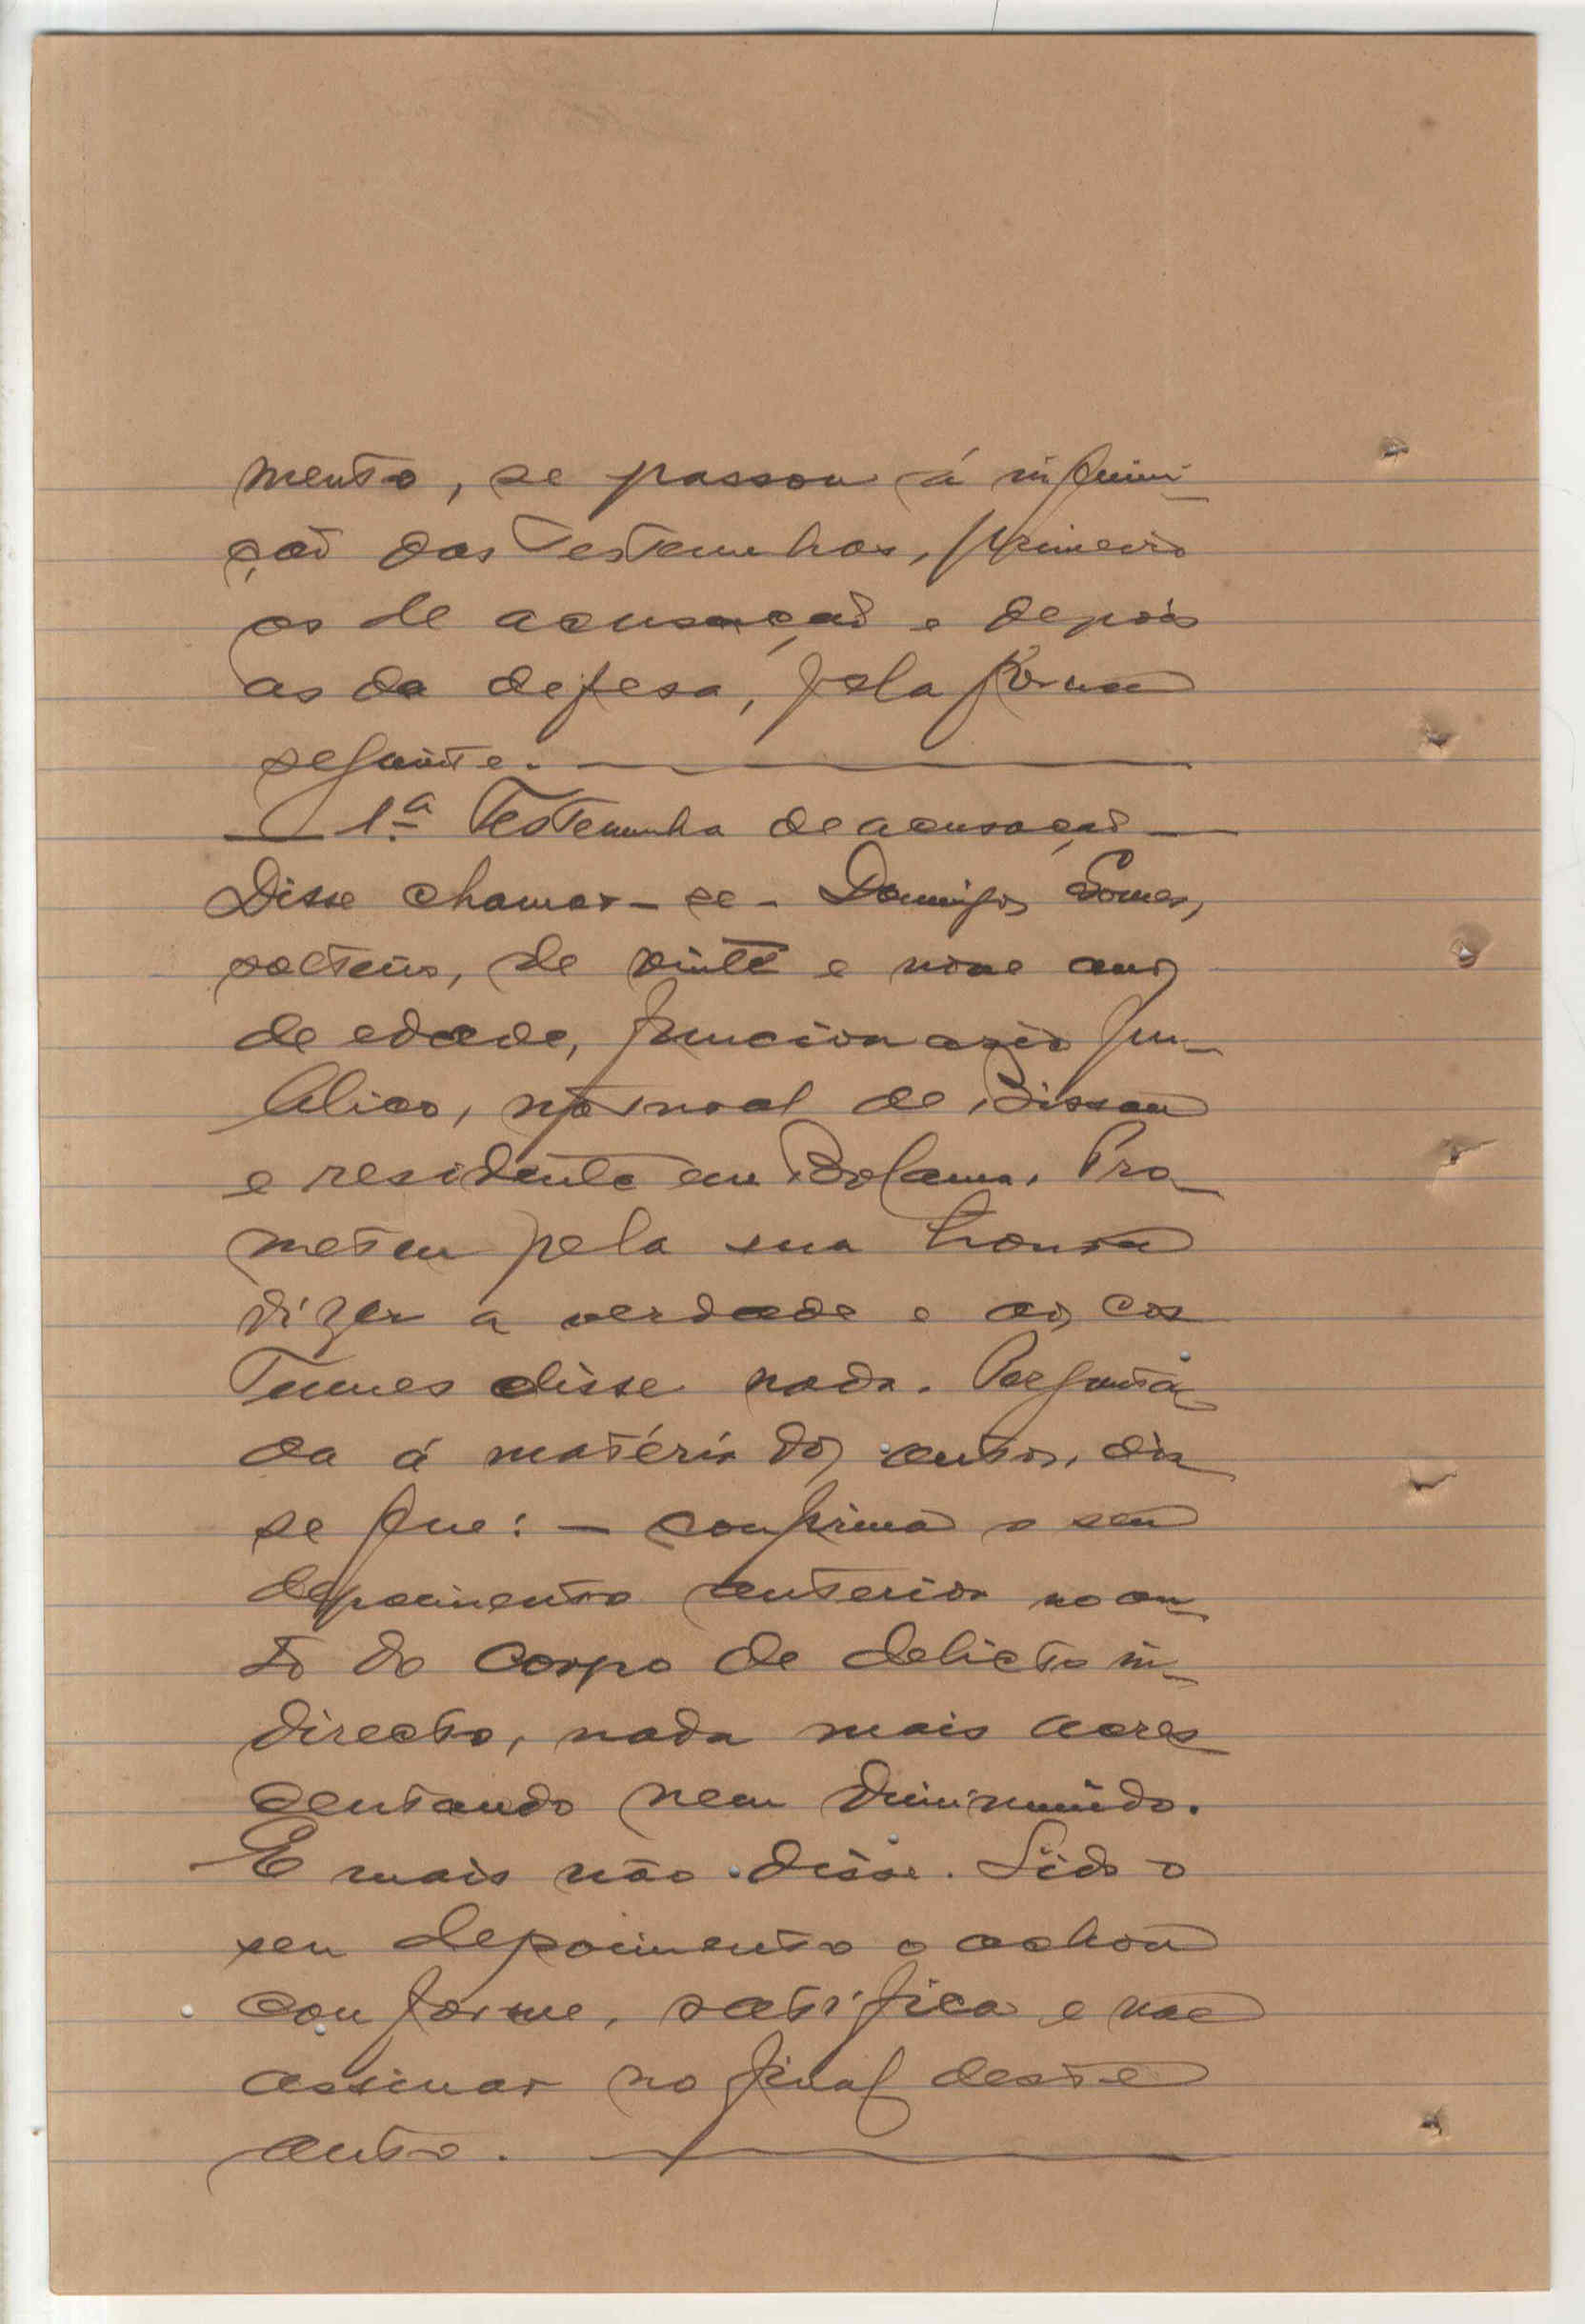 mento, se passou á inquiri-
ção das testemunhas, primeiro
as de acusação e depois
as da defesa, pela forma
seguinte.
1.ª Testemunha de acusação
Disse chamar-se - Domingos Gomes,
solteiro, de vinte e nove anos
de edade, funcionario pu-
blico, natural de Bissau
e residente em Bolama. Pro-
meteu pela sua honra
dizer a verdade e aos cos
tumes disse nada. Pergunta-
da á matéria dos autos, dis-
se que: - confirma o seu
depoimento anterior no au-
to do corpo de delicto in-
directo, nada mais acres
centando nem diminuindo.
E mais não disse. Lido o
seu depoimento o achou
conforme, ratifica e vae
assinar no final deste
auto.